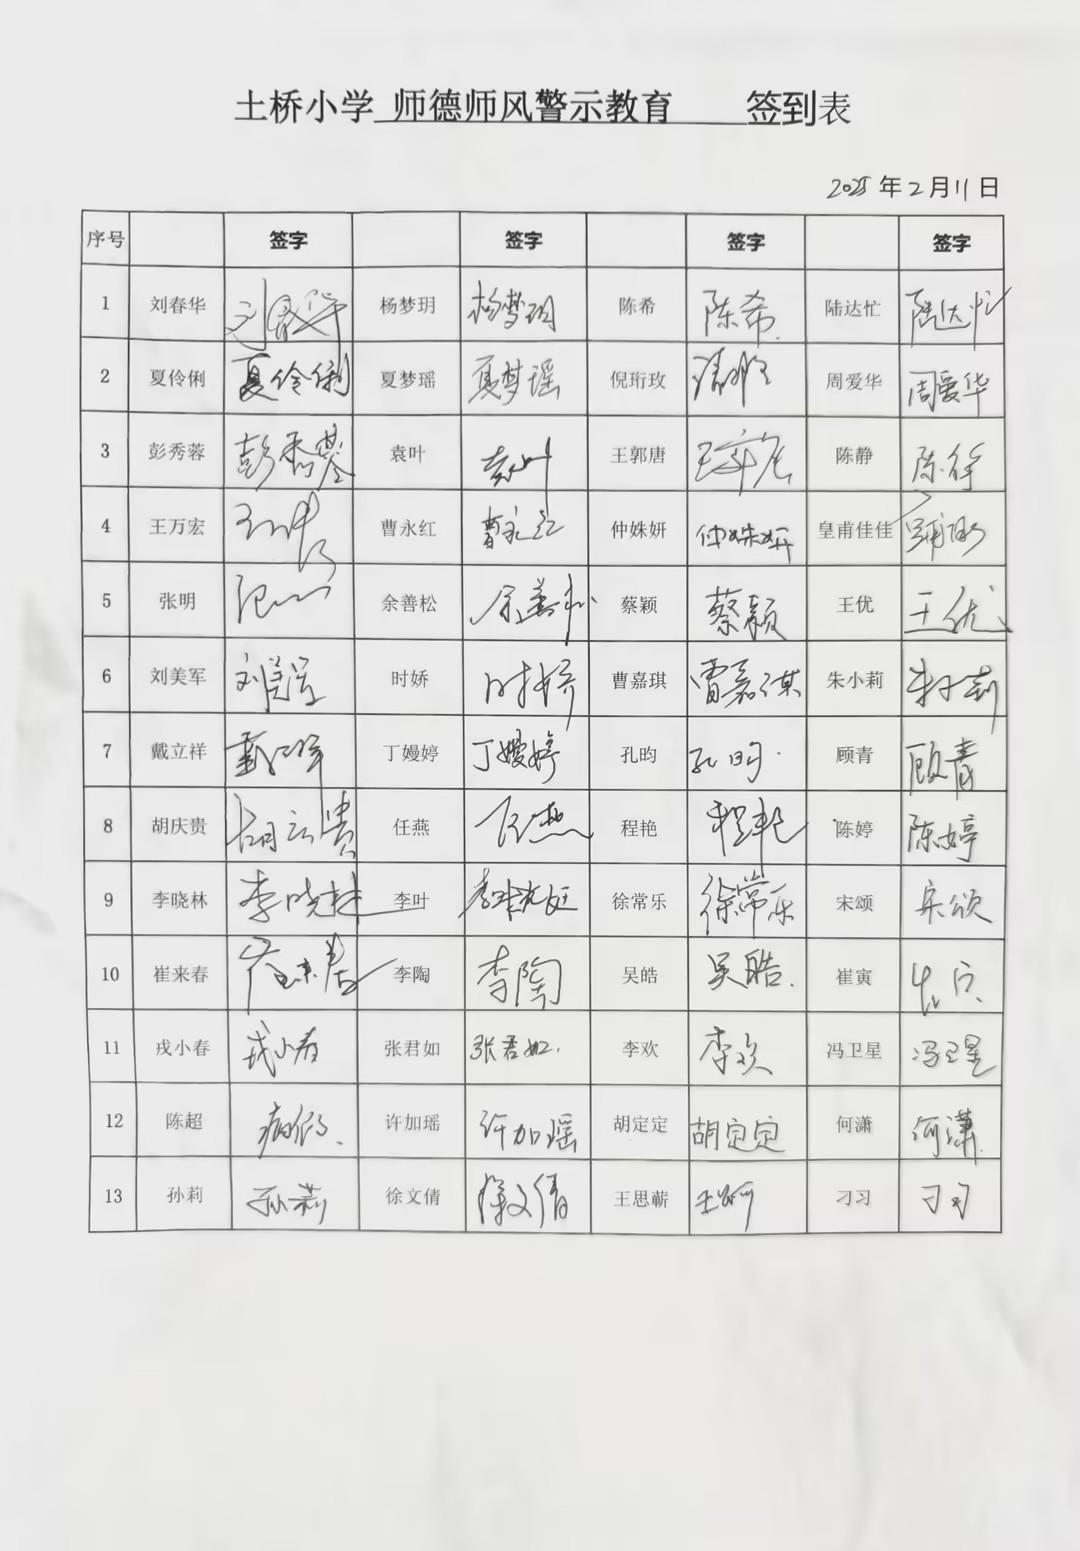 土桥小学 师德师风警示教育 签到表
2025年2月11日
序号 签字 签字 签字 签字
1 刘春华 刘春华 杨梦玥 杨梦玥 陈希 陈希. 陆达忙 陆达忙
2 夏伶俐 夏伶俐 夏梦瑶 夏梦瑶 倪珩玫 周爱华 周爱华
3 彭秀蓉 彭秀蓉 袁叶 袁叶 王郭唐 陈静 陈静
4 王万宏 曹永红 曹永红 仲姝妍 仲姝妍 皇甫佳佳
5 张明 余善松 余善松 蔡颖 蔡颖 王优 王优
6 刘美军 刘美军 时娇 时娇 曹嘉琪 曹嘉琪 朱小莉 朱小莉
7 戴立祥 戴立祥 丁嫚婷 丁嫚婷 孔昀 孔昀. 顾青 顾青
8 胡庆贵 胡庆贵 任燕 任燕 程艳 程艳 陈婷 陈婷
9 李晓林 李晓林 李叶 徐常乐 徐常乐 宋颂 宋颂
10 崔来春 崔来春 李陶 李陶 吴皓 吴皓. 崔寅
11 戎小春 戎小春 张君如 张君如. 李欢 李欢 冯卫星 冯卫星
12 陈超 病假. 许加瑶 许加瑶 胡定定 胡定定 何潇 何潇
13 孙莉 孙莉 徐文倩 徐文倩 王思蕲 刁习 刁习